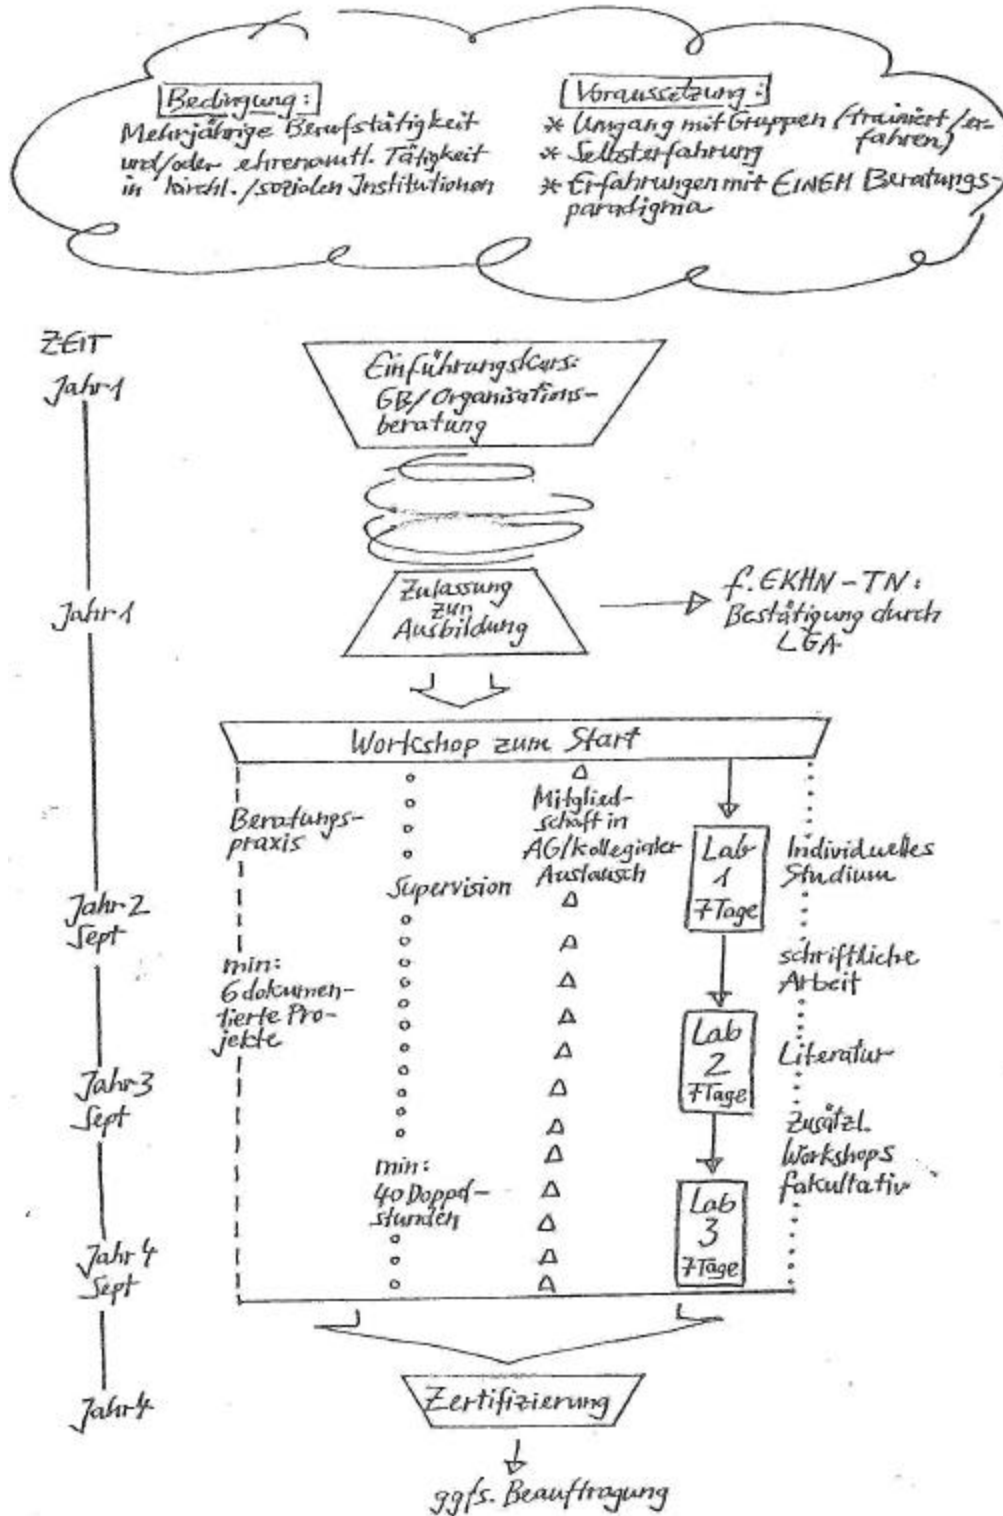 Bedingung:
Mehrjährige Berufstätigkeit
und/oder ehrenamtl. Tätigkeit
in kirchl./sozialen Institutionen
Voraussetzung:
* Umgang mit Gruppen (trainiert/er-
fahren)
* Selbsterfahrung
* Erfahrungen mit EINEM Beratungs-
paradigma
ZEIT
Jahr 1
Einführungskurs:
GB/Organisations-
beratung
Jahr 1
Zulassung
zur
Ausbildung
f. EKHN-TN:
Bestätigung durch
LGA
Workshop zum Start
Beratungs-
praxis
min:
6 dokumen-
tierte Pro-
jekte
Supervision
min:
40 Doppel-
stunden
Mitglied-
schaft in
AG/kollegialer
Austausch
Lab
1
7 Tage
Lab
2
7 Tage
Lab
3
7 Tage
Individuelles
Studium
schriftliche
Arbeit
Literatur
Zusätzl.
Workshops
fakultativ
Jahr 2
Sept
Jahr 3
Sept
Jahr 4
Sept
Jahr 4
Zertifizierung
ggfs. Beauftragung